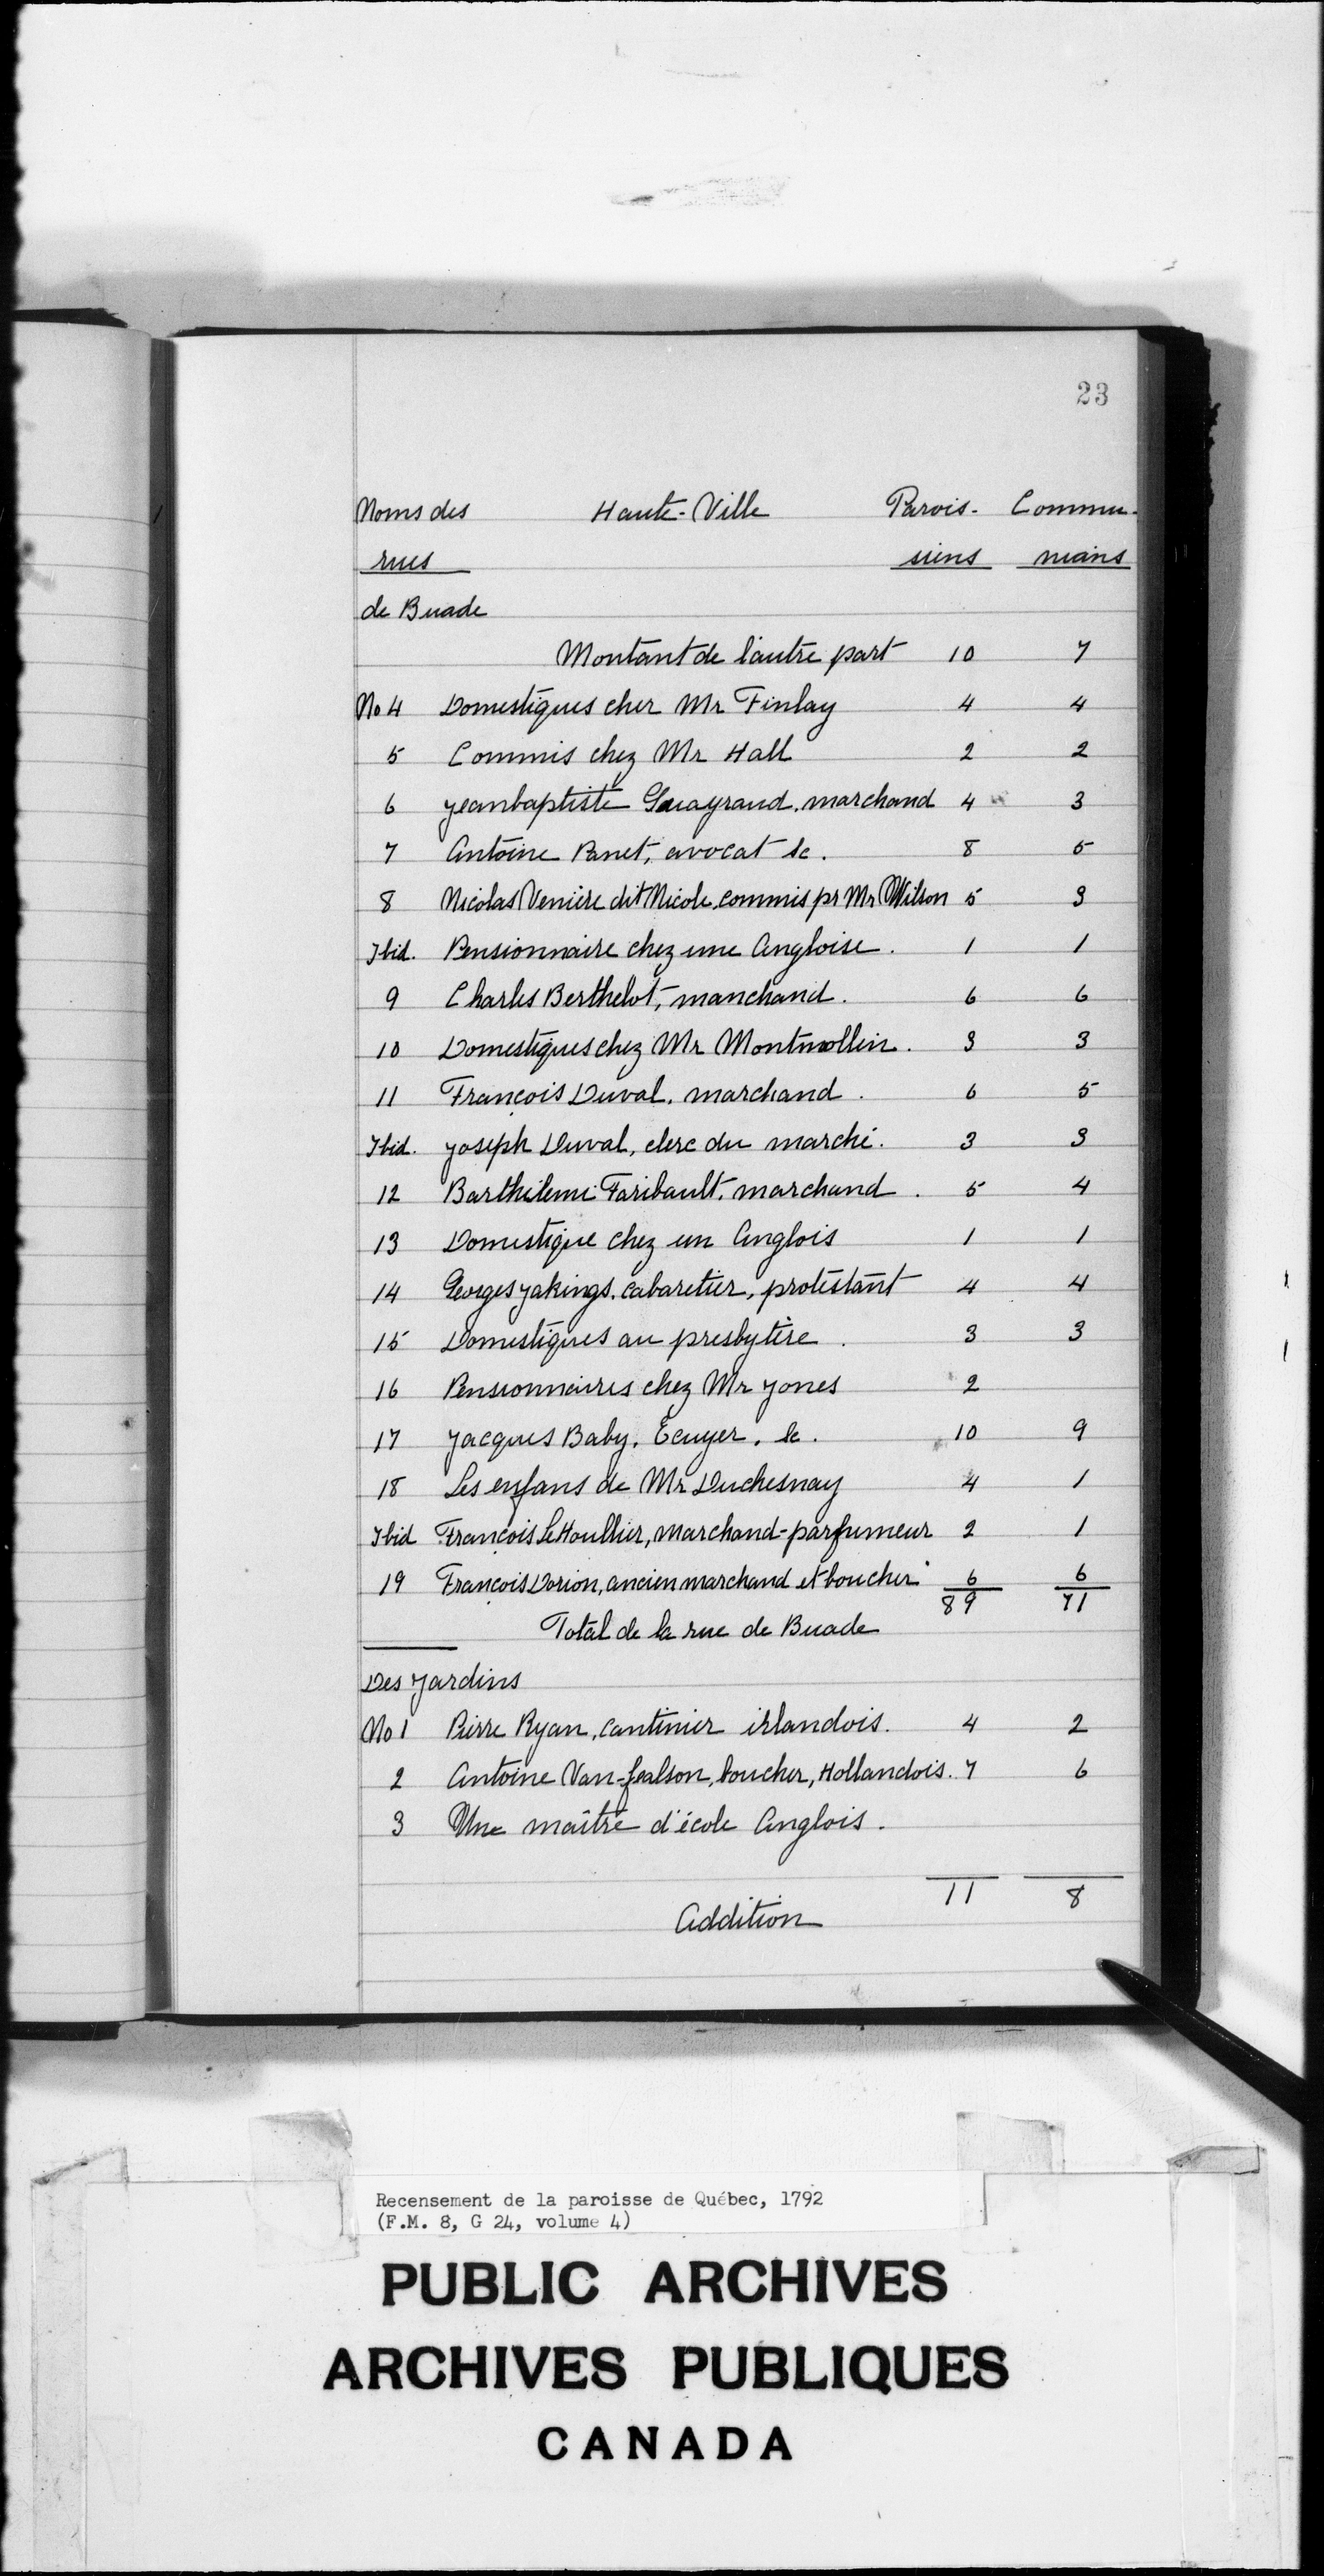 23
Noms des Haute-Ville Parois- Commu-
rues siens nians
de Buade
Montant de l'autre part 10 7
No 4 Domestiques cher Mr Finlay 4 4
5 Commis chez Mr Hall 2 2
6 Jeanbaptiste marchand 4 3
7 Antoine Panet, avocat &c. 8 5
8 Nicolas Venière dit Nicole, commis pr Mr Wilson 5 3
Ibid. Pensionnaire chez une Angloise. 1 1
9 Charles Berthelot, manchand. 6 6
10 Domestiques chez Mr Montmollin. 3 3
11 François Duval, marchand. 6 5
Ibid. Joseph Duval, clerc du marché. 3 3
12 Barthilemi Faribault, marchand. 5 4
13 Domestique chez un Anglois 1 1
14 Georges Jakings, cabaretier, protestant 4 4
15 Domestiques au presbytère. 3 3
16 Pensionnaires chez Mr Jones 2
17 Jacques Baby, Ecuyer, &c. 10 9
18 Les enfans de Mr Duchesnay 4 1
Ibid François LeHoullier, marchand-parfumeur 2 1
19 François Dorion, ancien marchand et boucher 6 6
89 71
Total de la rue de Buade
Des Jardins
No 1 Pierre Ryan, cantinier irlandois. 4 2
2 Antoine Van-fealson, boucher, Hollandois. 7 6
3 Une maître d'école Anglois.
11 8
Addition
Recensement de la paroisse de Québec, 1792
(F.M. 8, G 24, volume 4)
PUBLIC ARCHIVES
ARCHIVES PUBLIQUES
CANADA